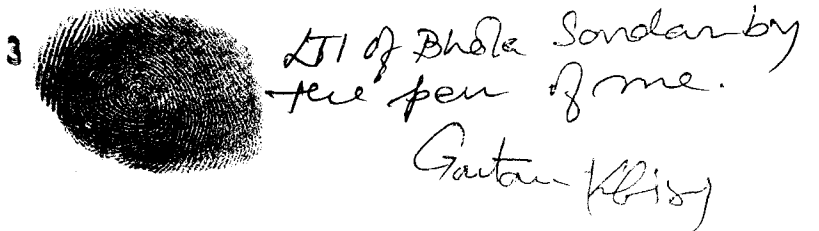 3
LTI of Bhola Sordar by
the pen of me.
Goutam